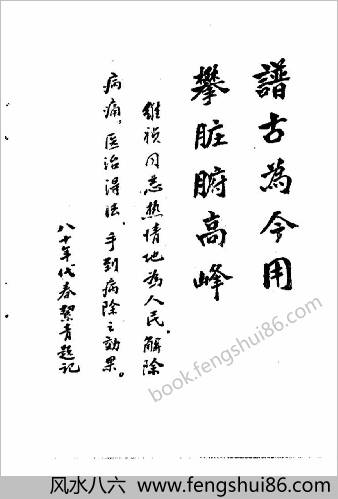 譜古為今用
攀脏腑高峰
維祯同志热情地為人民、解除
病痛，医治得法、手到病除之効果。
八十年代春絜青題记
book.fengshui86.com
风水八六 www.fengshui86.com